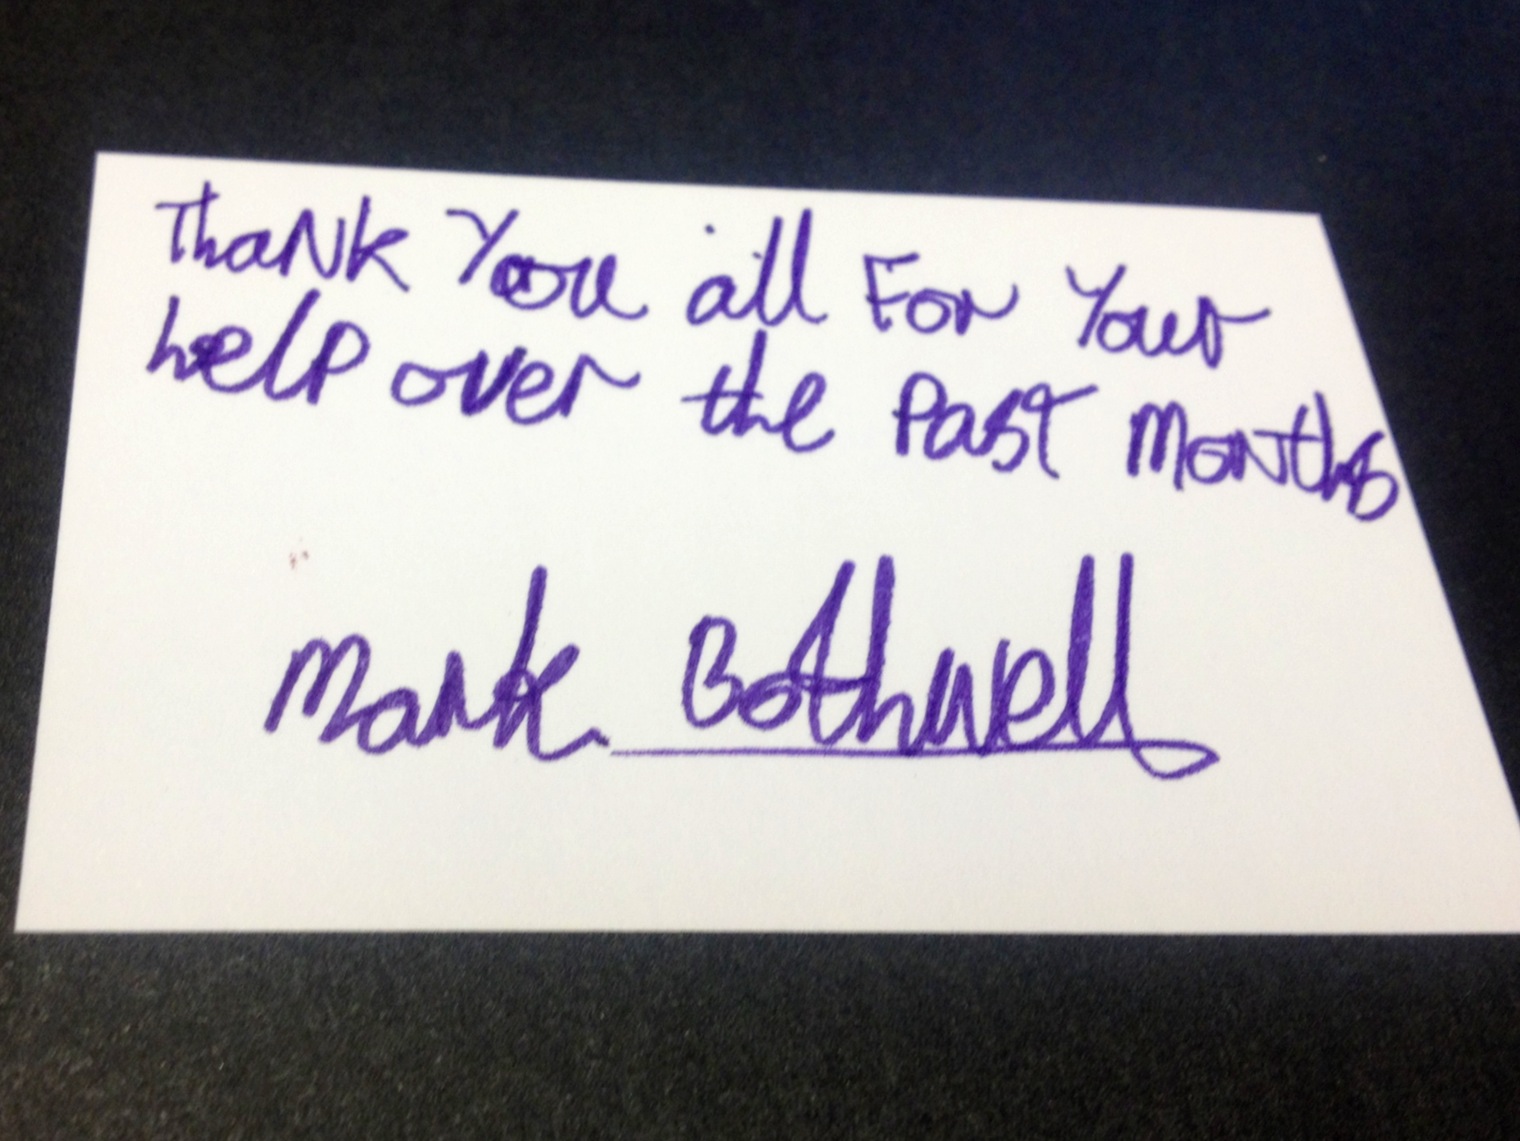 Thank You all For Your
help over the Past Months
Mark Bothwell